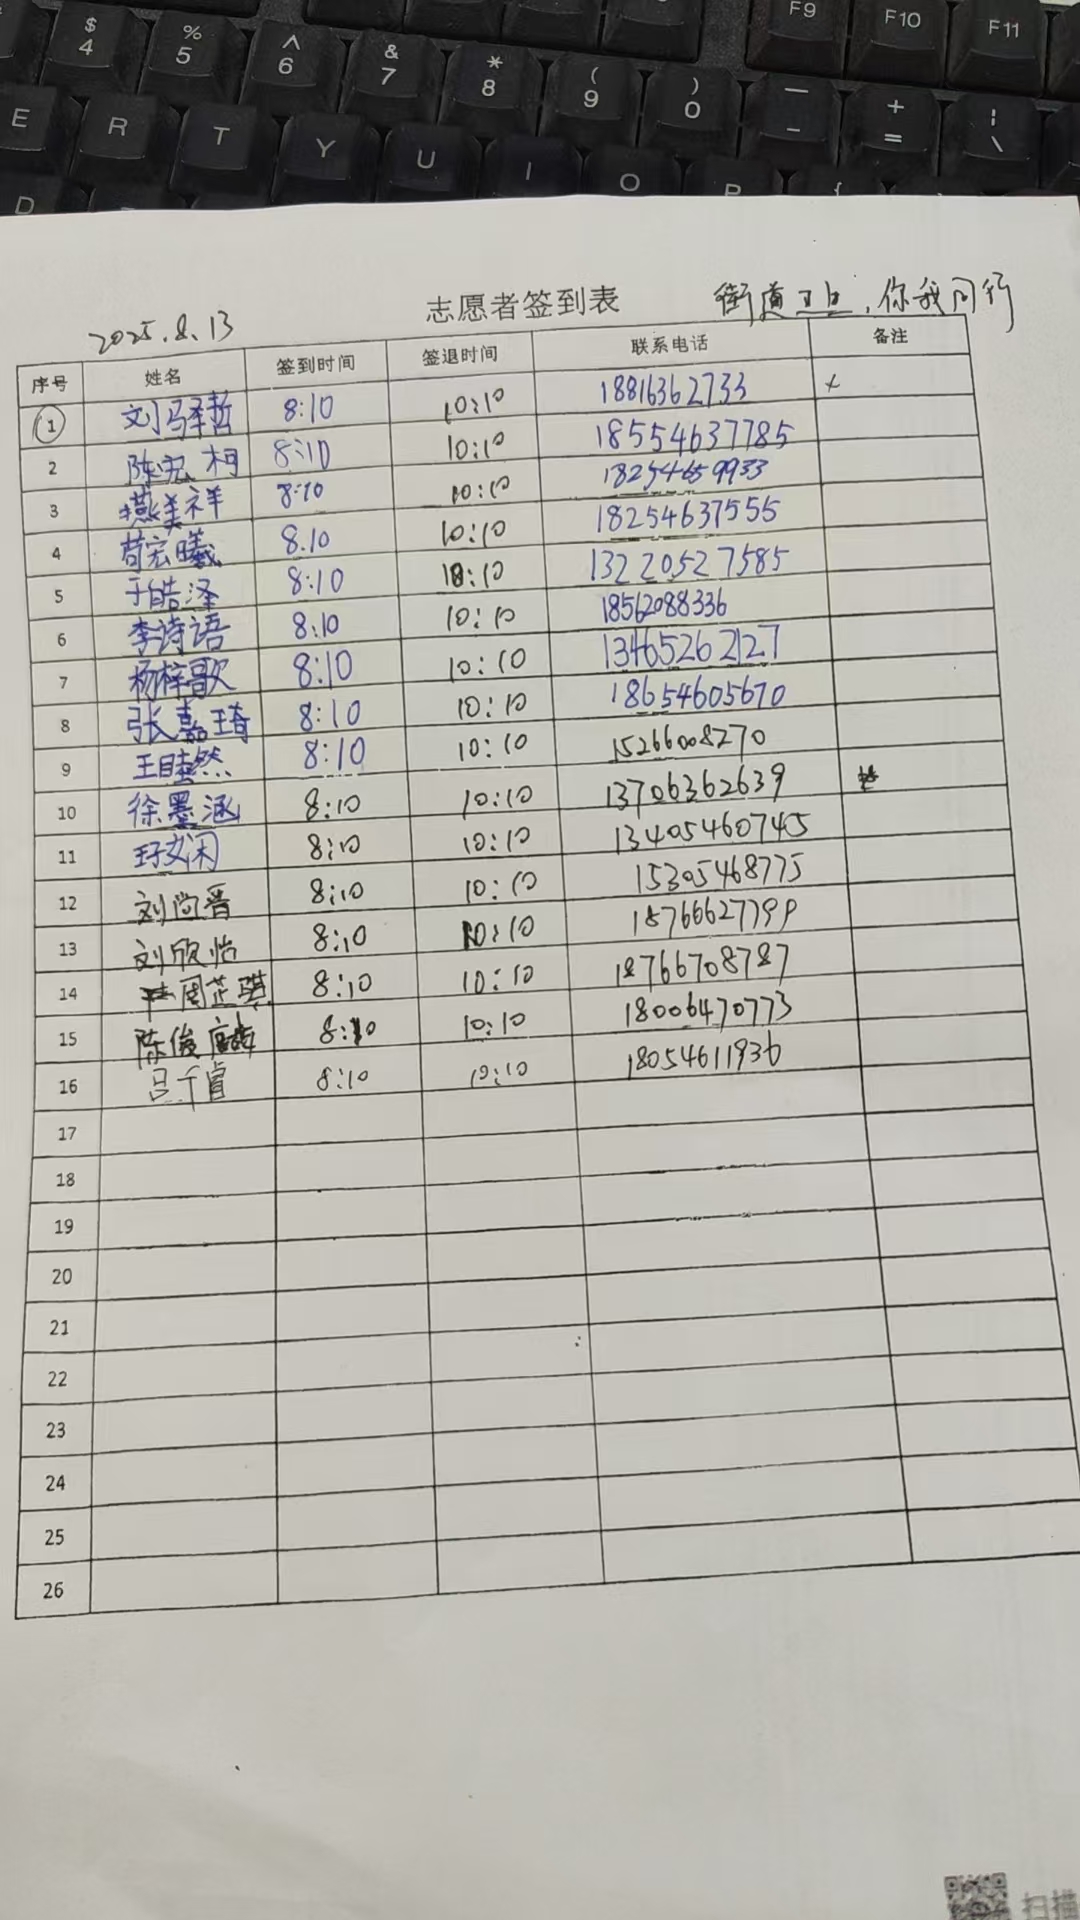 $ 4 % 5 ^ 6 & 7 * 8 ( 9 ) 0 — - + = F9 F10 F11
E R T Y U I O P { \
D
2025.8.13 志愿者签到表 街道卫生,你我同行
序号 姓名 签到时间 签退时间 联系电话 备注
1 刘驿哲 8:10 10:10 18816362733 x
2 陈宏柯 8:10 10:10 18554637785
3 燕美祥 8:10 10:10 18254659933
4 苟宏曦 8.10 10:10 18254637555
5 于皓泽 8:10 10:10 13220527585
6 李诗语 8:10 10:10 18562088336
7 杨梓歌 8:10 10:10 13465262127
8 张嘉琦 8:10 10:10 18654605670
9 王睦然 8:10 10:10 15266008270
10 徐墨涵 8:10 10:10 13706362639
11 8:10 10:10 13405460745
12 刘尚晋 8:10 10:10 15305468775
13 刘欣怡 8:10 10:10 18766627799
14 周芷琪 8:10 10:10 18766708787
15 陈俊 8:10 10:10 18006470773
16 吕千睿 8:10 10:10 18054611936
17
18
19
20
21
22
23
24
25
26
扫描